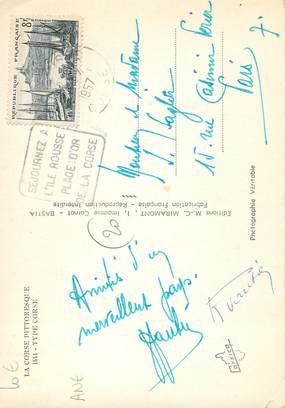 LA CORSE PITTORESQUE
1614 - TYPE CORSE
Amitiés d'un
merveilleux pays.
Editions M.-C. MIRAMONT, 1, Impasse Carnot - BASTIA
Fabrication Française - Reproduction Interdite
Photographie Véritable
REPUBLIQUE FRANÇAISE
8F
1957
CORSE
SEJOURNEZ A
L'ILE ROUSSE
PLAGE D'OR
DE LA CORSE
Monsieur et Madame
15 rue Casimir Périer
Paris 7.
20
10 €
CORSICA